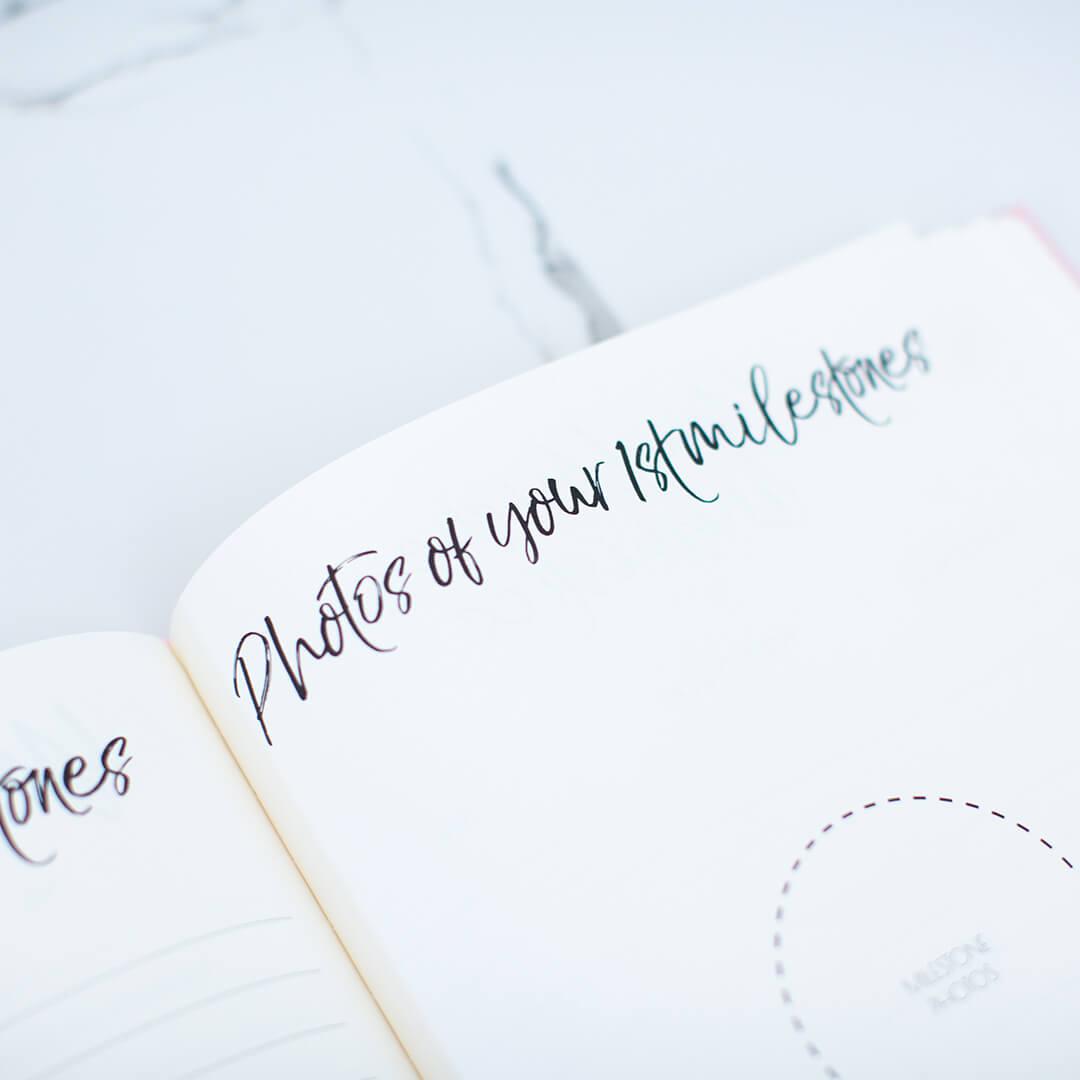 Photos of your 1st milestones
MILESTONE
PHOTOS